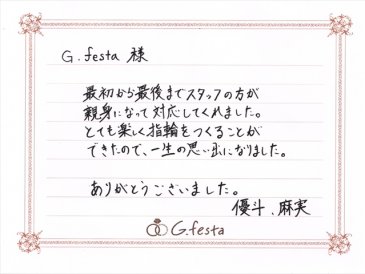 G.festa 様
最初から最後までスタッフの方が
親身になって対応してくれました。
とても楽しく指輪をつくることが
できたので、一生の思い出になりました。
ありがとうございました。
優斗、麻実
G.festa